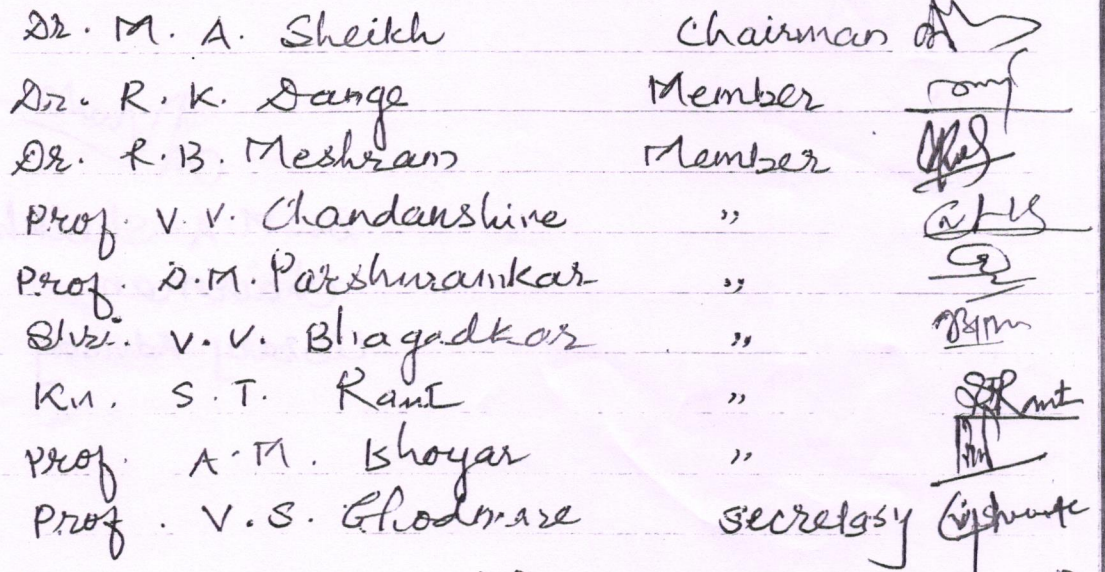 Dr. M. A. Sheikh Chairman
Dr. R. K. Dange Member
Dr. R. B. Meshram Member
Prof. V. V. Chandanshire ,,
Prof. D. M. Parshuramkar ,,
Shri. V. V. Bhagadkar ,,
Ku. S. T. Raut ,,
Prof. A. M. Bhoyar ,,
Prof. V. S. Ghodmare secretary